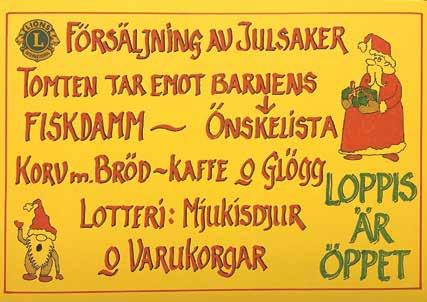 LIONS
L
INTERNATIONAL
FÖRSÄLJNING AV JULSAKER
TOMTEN TAR EMOT BARNENS
FISKDAMM ~ ÖNSKELISTA
KORV m. BRÖD ~ KAFFE O GLÖGG
LOTTERI: MJUKISDJUR
O VARUKORGAR
LOPPIS
ÄR
ÖPPET